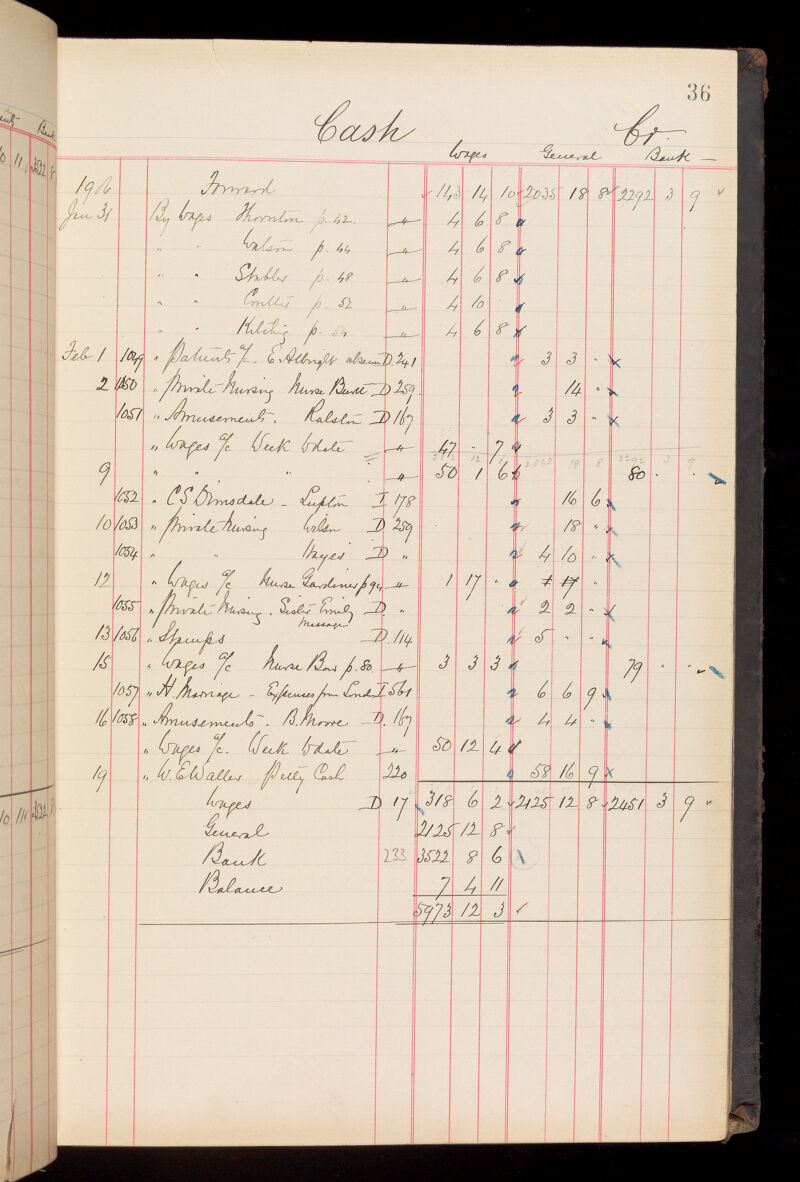 36
Cash Cr
Wages General Bank
1906 Forward 143 14 10 2035 18 8 2292 3 9
Jan 31 By Wages Thornton p. 42. " 4 6 8
" " Watson p. 44 " 4 6 8
" " Stabler p. 48 " 4 6 8
" " p. 52 " 4 10
" " p. " 4 6 8
Feb 1 1049 " Patients a/c - E. Albright D. 241 3 3 "
2 1050 " Private Nursing Nurse D 259. 14 "
1051 " Amusements. Ralston D 167 3 3 "
" Wages a/c Week to date " 47 " 7
272 12 1 2042 18 8 2292 3 9
9 " " " " 50 1 6 80 " "
1052 " C S Dimsdale - Lupton I 178 16 6
10 1053 " Private Nursing Wilson D 259 18 "
1054 " " Hayes D " 4 10 "
12 " Wages a/c Nurse Gardiner p 94 " 1 17 " 1 17 "
1055 " Private Nursing. Sister Emily D " 2 2 "
Massage
13 1056 " Stamps D. 114 5 " "
15 " Wages a/c Nurse Bow p. 80. " 3 3 3 79 " "
1057 " H. Marriage - Expenses from London I 561 6 6 9
16 1058 " Amusements - B. Moore D. 167 4 4 "
" Wages a/c. Week to date " 50 12 4
19 " W. E Waller Petty Cash 220 58 16 9
Wages D 17 318 6 2 2125 12 8 2451 3 9
General 2125 12 8
Bank 233 3522 8 6
Balance 7 4 11
5973 12 3